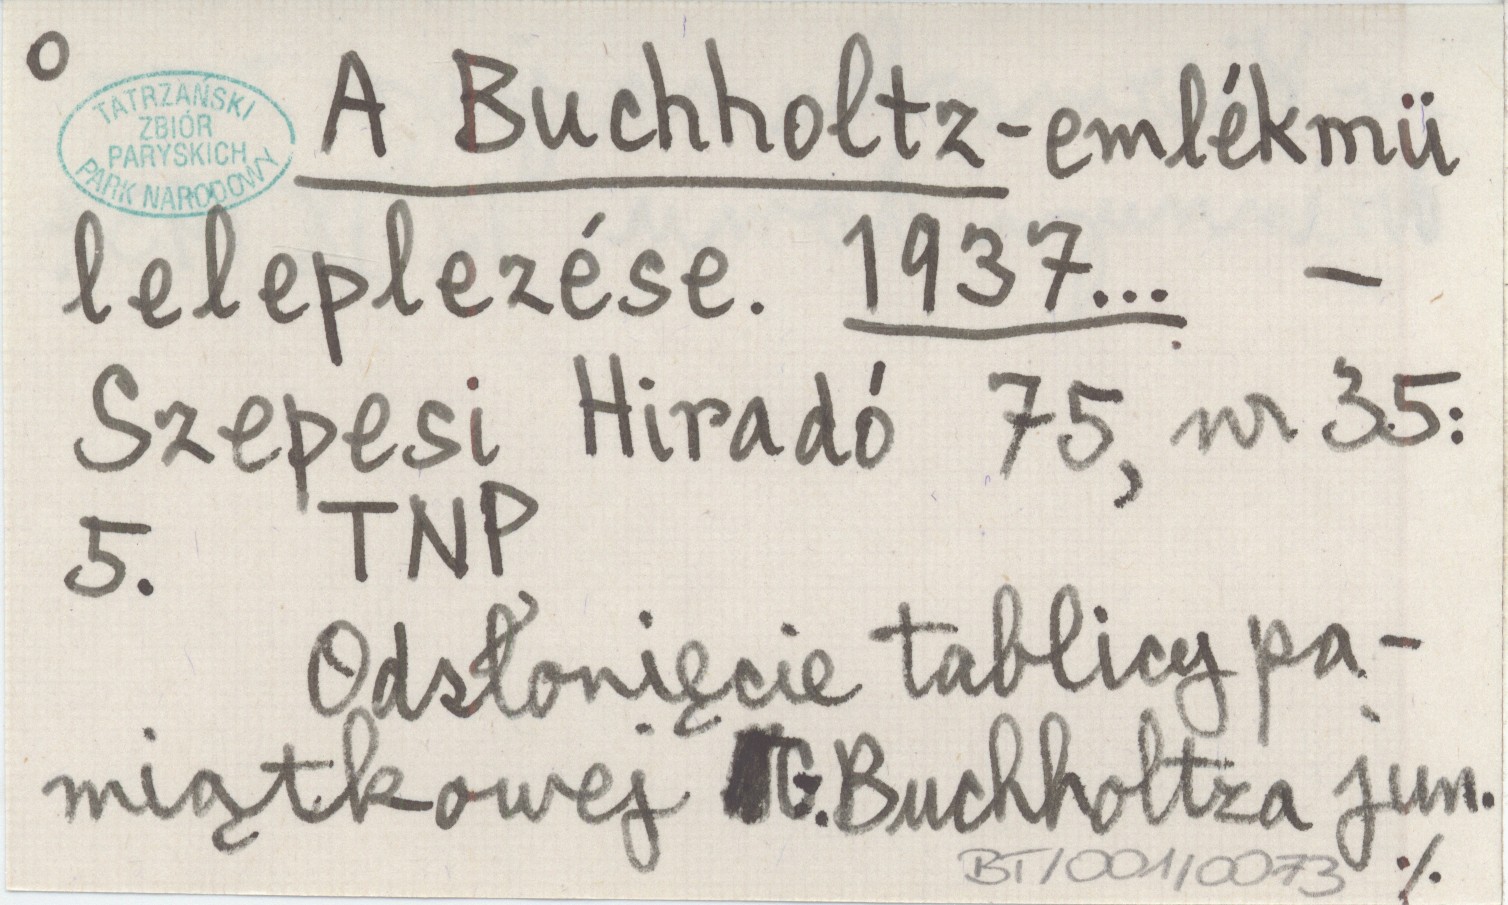 O
TATRZAŃSKI
ZBIÓR
PARYSKICH
PARK NARODOWY
A Buchholtz-emlékmü
leleplezése. 1937... –
Szepesi Hiradó 75, nr 35:
5. TNP
Odsłonięcie tablicy pa-
miątkowej G. Buchholtza jun.
BT/001/0073 ./.